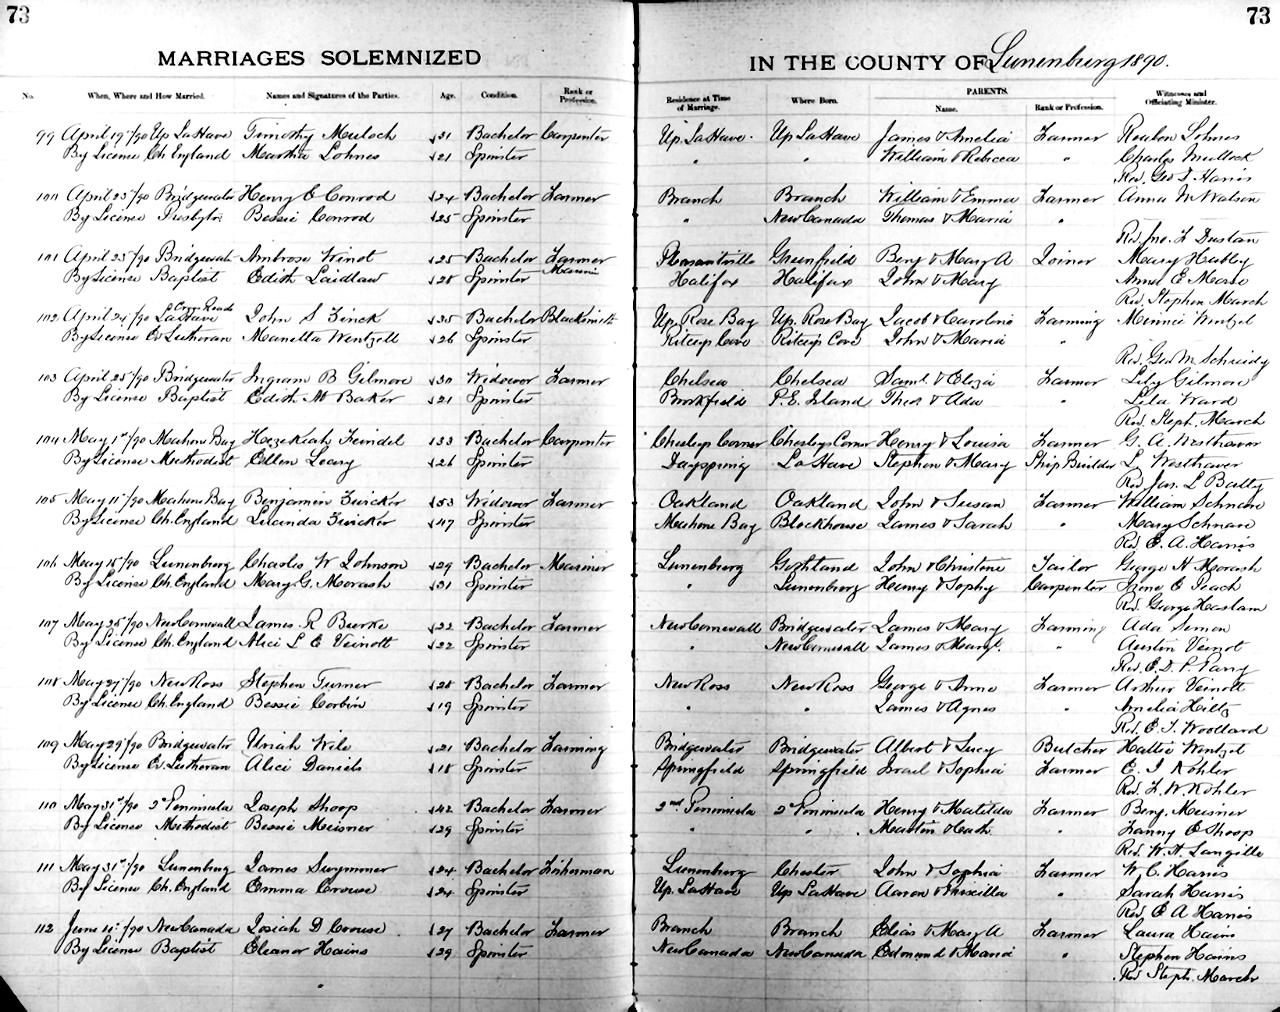 73
73
MARRIAGES SOLEMNIZED
IN THE COUNTY OF Lunenburg 1890.
No. When, Where and How Married. Names and Signatures of the Parties. Age. Condition. Rank or Profession. Residence at Time of Marriage. Where Born. PARENTS. Name. Rank or Profession. Witnesses and Officiating Minister.
99 April 19"/90 Up LaHave Timothy Muloch 31 Bachelor Carpenter Up. LaHave. Up LaHave James & Amelia Farmer Reubon Lohnes
By License Ch. England Martha Lohnes 21 Spinster " " William & Rebecca " Charles Mullock
Rev. Geo D Harris
100 April 23"/90 Bridgewater Henry E Conrod 24 Bachelor Farmer Branch Branch William & Emma Farmer Anna M Watson
By License Presbytn Bessie Conrod 25 Spinster " New Canada Thomas & Maria "
Rev. Jno. F Dustan
101 April 23"/90 Bridgewater Ambrose Winot 25 Bachelor Farmer Pleasantville Greenfield Benj & Mary A Joiner Mary Hubly
By License Baptist Edith Laidlaw 28 Spinster Halifax Halifax John & Mary Anna E
Rev. Stephen March
102 April 24/90 LaHave Cross Roads John S Zinck 35 Bachelor Blacksmith Up. Rose Bay Up. Rose Bay Jacob & Caroline Farming Minnie Wentzel
By License Ev Lutheran Manetta Wentzell 26 Spinster Ritceys Cove Ritceys Cove John & Maria "
Rev. Geo M
103 April 25"/90 Bridgewater Ingram B Gilmore 30 Widower Farmer Chelsea Chelsea Saml. & Eliza Farmer Lily Gilmore
By License Baptist Edith M Baker 21 Spinster Brookfield P.E. Island Thos & Ada " Lila Ward
Rev. Steph. March
104 May 1st/90 Mahone Bay Hezekiah Feindel 33 Bachelor Carpenter Chesleys Corner Chesleys Corner Henry & Louisa Farmer G. A. Westhaver
By License Methodist Ellen Leary 26 Spinster Dayspring LaHave Stephen & Mary Ship Builder L. Westhaver
Rev. Jas. L Batty
105 May 11"/90 Mahone Bay Benjamin Zwicker 53 Widower Farmer Oakland Oakland John & Susan Farmer William Schnare
By License Ch. England Lucinda Zwicker 47 Spinster Mahone Bay Blockhouse James & Sarah " Mary Schnare
Rev. E. A. Harris
106 May 15"/90 Lunenburg Charles W Johnson 29 Bachelor Mariner Lunenburg Gothland John & Christine Tailor George H Morash
By License Ch. England Mary G. Morash 31 Spinster " Lunenburg Henry & Sophy Carpenter Irene E Peach
Rev. George Haslam
107 May 25"/90 New Cornwall James R Burke 22 Bachelor Farmer New Cornwall Bridgewater James & Mary Farming Ada
By License Ch. England Alice L E Veinott 22 Spinster " New Cornwall James & Mary " Austin Veinot
Rev. E. D. P. Parry
108 May 27"/90 New Ross Stephen Turner 28 Bachelor Farmer New Ross New Ross George & Anne Farmer Arthur Veinott
By License Ch. England Bessie Corbin 19 Spinster " " James & Agnes " Amelia Hiltz
Rev. E. T. Woollard
109 May 29"/90 Bridgewater Uriah Wile 21 Bachelor Farming Bridgewater Bridgewater Albert & Lucy Butcher Hattie Wentzel
By License Ev. Lutheran Alice Daniels 18 Spinster Springfield Springfield Israel & Sophia Farmer E. I Kohler
Rev. F. W. Kohler
110 May 31st/90 2d Peninsula Joseph Shoop 42 Bachelor Farmer 2nd Peninsula 2d Peninsula Henry & Matilda Farmer Benj. Meisner
By License Methodist Bessie Meisner 29 Spinster " " Martin & Cath. " Fanny E Shoop
Rev. W. H. Langille
111 May 31st/90 Lunenburg James Swymmer 24 Bachelor Fisherman Lunenburg Chester John & Sophia Farmer W. C. Harris
By License Ch. England Emma Crouse 24 Spinster Up. LaHave Up LaHave Aaron & Priscilla " Sarah Harris
Rev. E A Harris
112 June 11"/90 New Canada Josiah D Crouse 27 Bachelor Farmer Branch Branch Elias & Mary A Farmer Laura Hains
By License Baptist Eleanor Hains 29 Spinster New Canada New Canada Edmund & Maria " Stephen Hains
Rev Steph. March